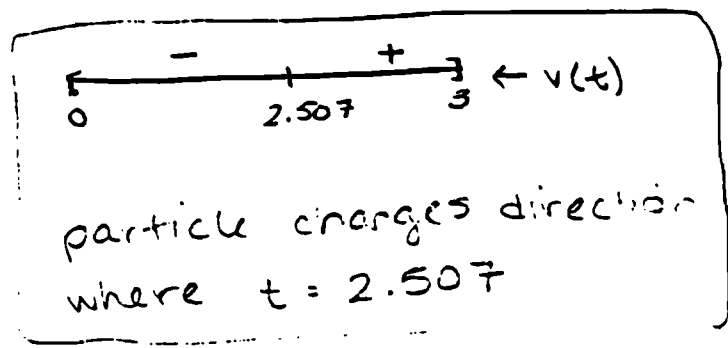 - +
0 2.507 3 ← v(t)
particle changes direction
where t = 2.507